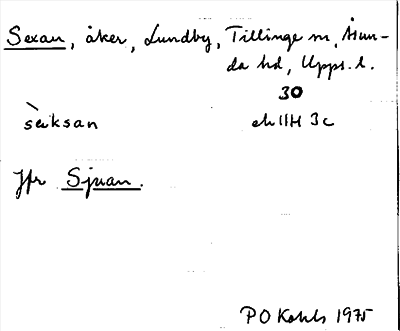 Sexan, åker, Lundby, Tillinge sn, Åsun-
da hd, Upps. l.
30
sèksan ek 11H 3c
Jfr Sjuan.
P O Kohls 1975